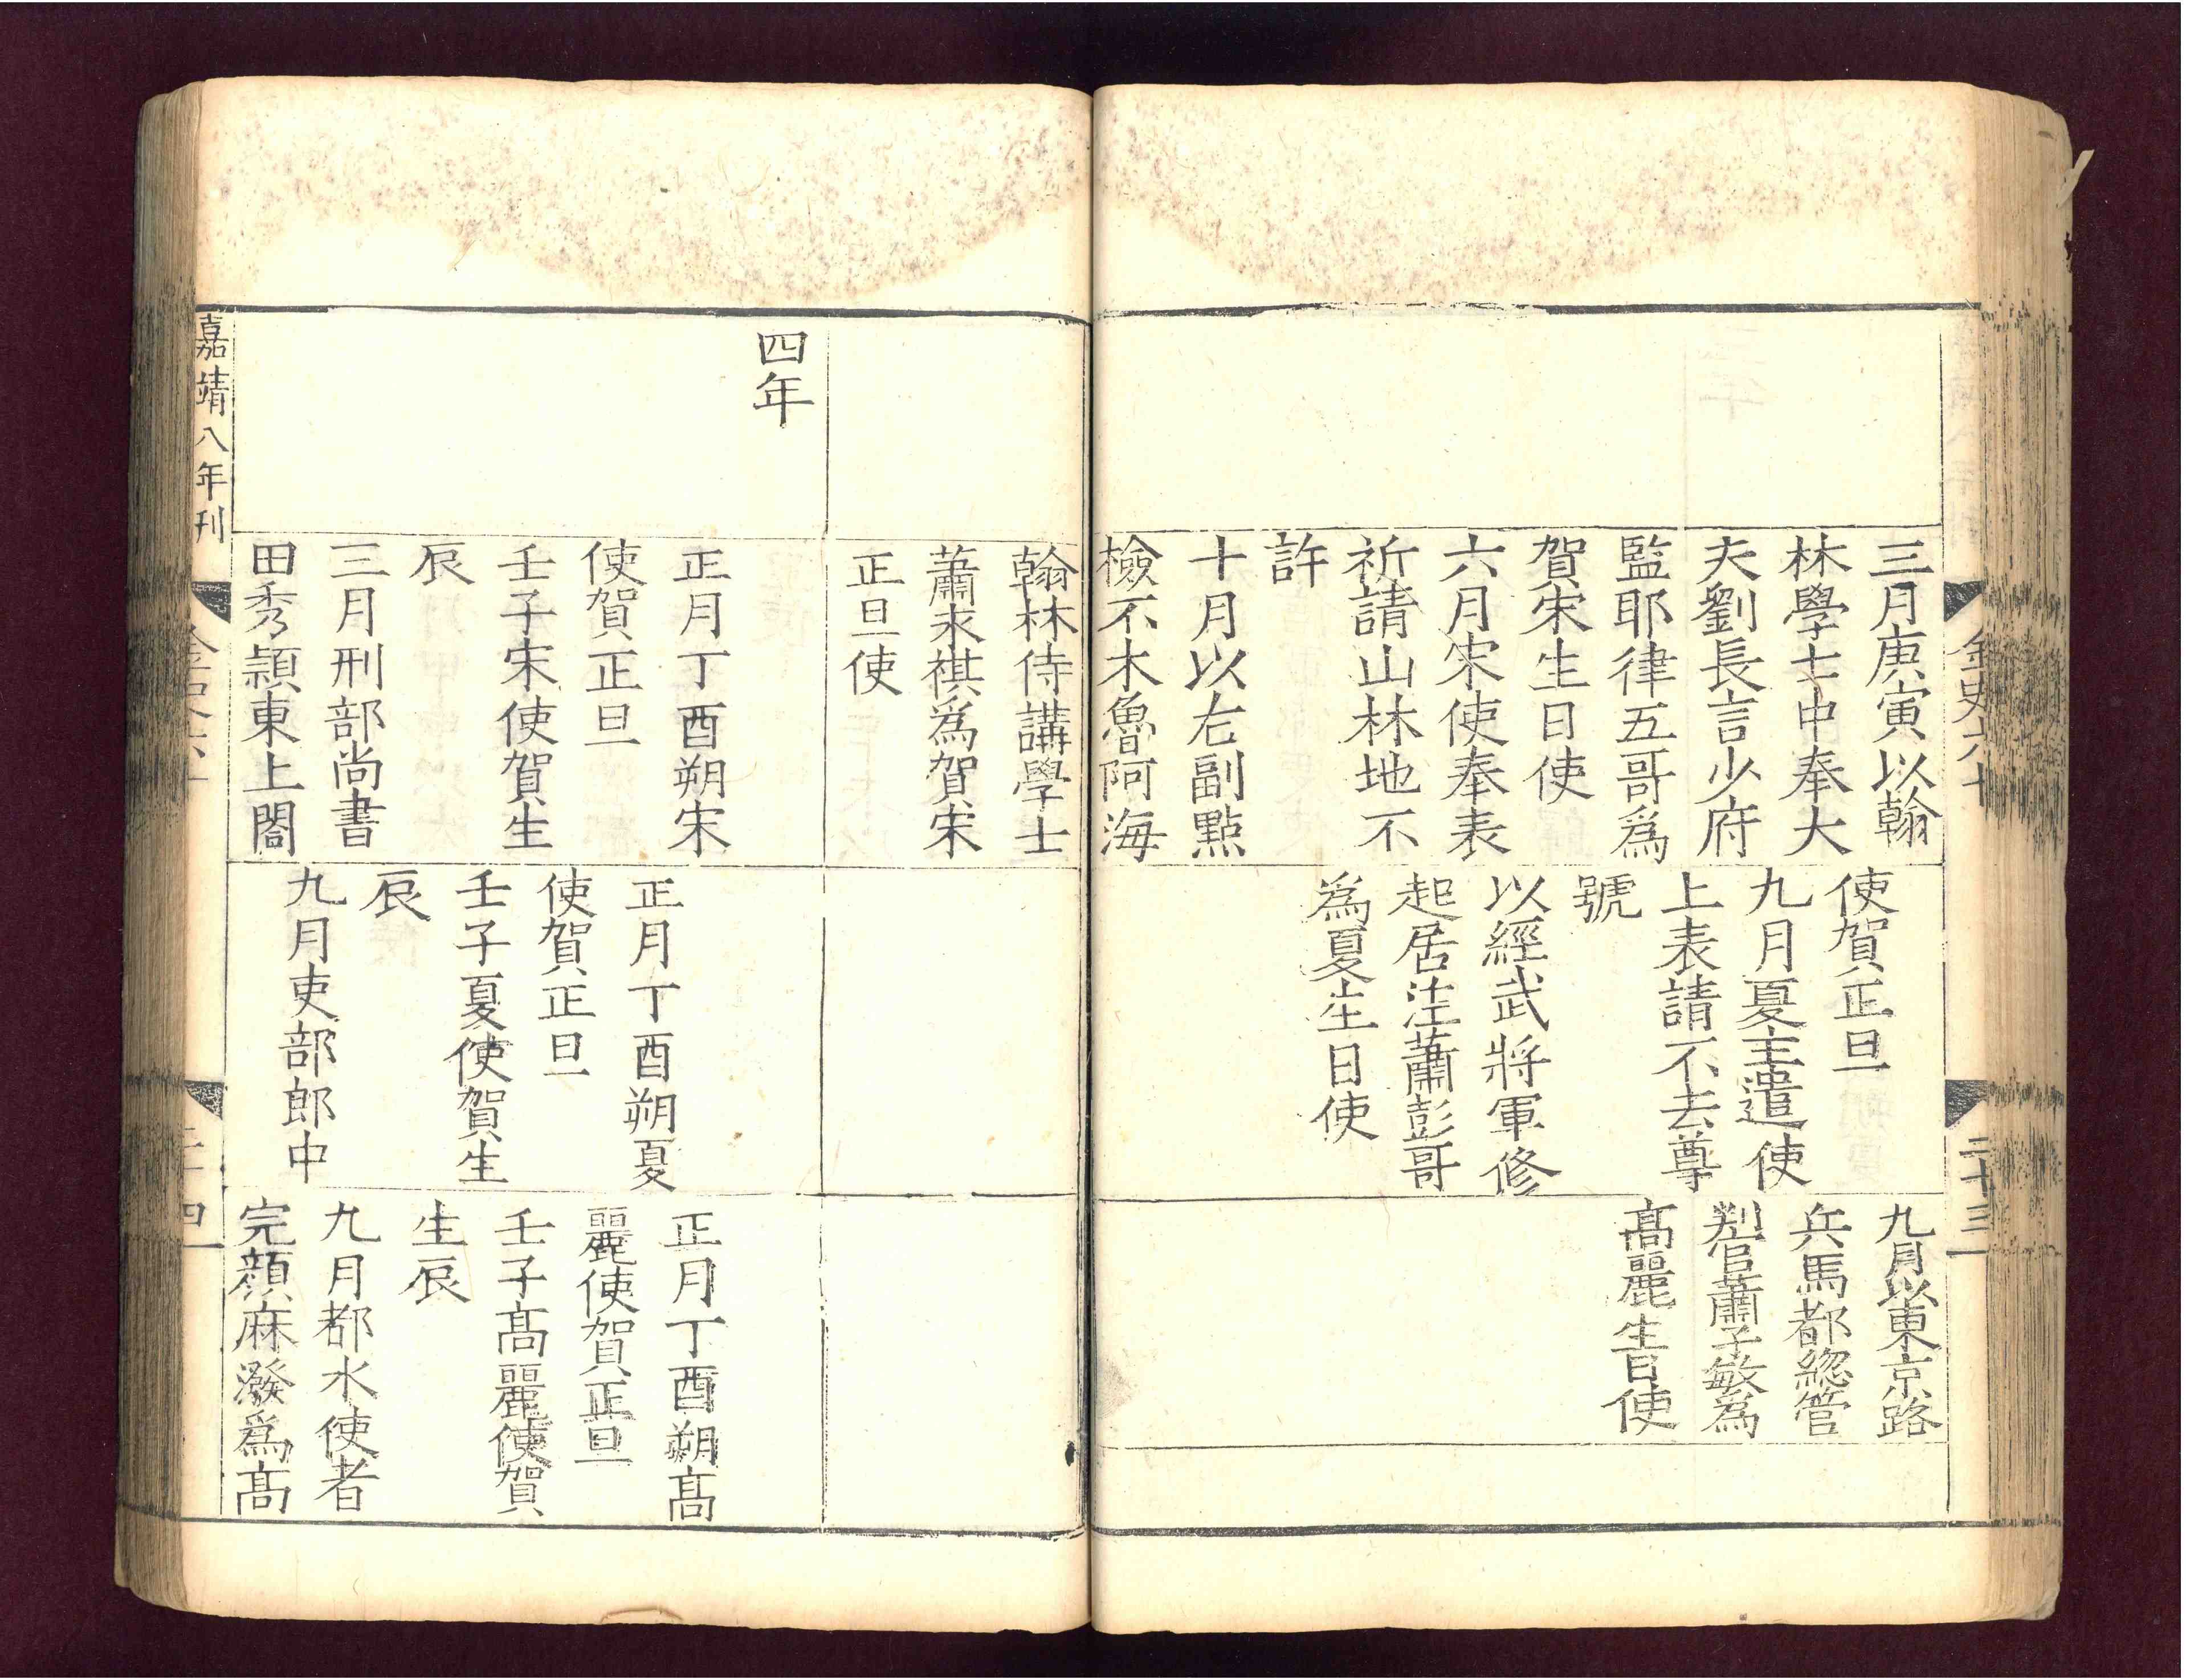 三月庚寅以翰
林學士中奉大
夫劉長言少府
監耶律五哥爲
賀宋生日使
六月宋使奉表
祈請山林地不
許
十月以右副點
檢不木魯阿海
使賀正旦
九月夏主遣使
上表請不去尊
號
以經武將軍修
起居注蕭彭哥
為夏生日使
九月以東京路
兵馬都緫管
判官蕭子敏爲
髙麗生日使
金史六十
二十三
翰林侍講學士
蕭永祺爲賀宋
正旦使
四年
正月丁酉朔宋
使賀正旦
壬子宋使賀生
辰
三月刑部尚書
田秀頴東上閤
正月丁酉朔夏
使賀正旦
壬子夏使賀生
辰
九月吏部郎中
正月丁酉朔髙
麗使賀正旦
壬子髙麗使賀
生辰
九月都水使者
完顔麻潑爲髙
嘉靖八年刊